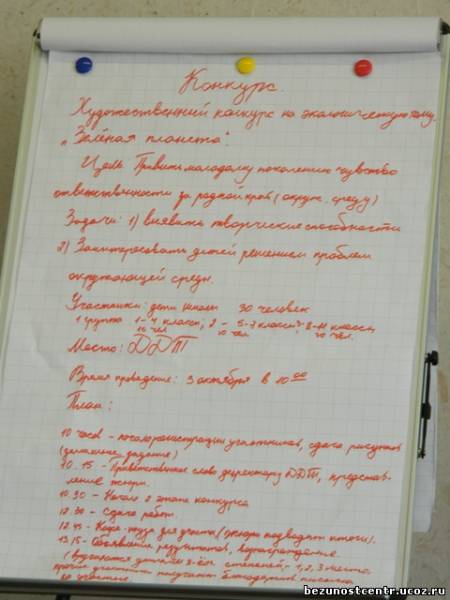 Конкурс.
Художественный конкурс на экологическую тему
„Зелёная планета".
Цель: Привить молодому поколению чувство
ответственности за родной край (окруж. среду)
Задачи: 1) выявить творческие способности
2) Заинтересовать детей решением проблем
окружающей среды.
Участники: дети школы 30 человек
1 группа 1-4 классы, 2 - 5-7 классы 8-11 классы,
10 чел. 10 чел. 10 чел.
Место: ДДТ
Время проведение: 3 октября в 10 00
План:
10 часов - регистрации участников, сдача рисунков
(домашнее задание)
10.15 - Приветственное слово директору ДДТ, представ-
ление жюри.
10.30 - Начало 2 этапа конкурса
12.30 - Сдача работ.
12.45 - Кофе-пауза для участн. (жюри подводят итоги).
13.15 - Объявление результатов, награждение.
(вручаются степеней, 1, 2, 3 место,
получают
за участие.
bezunostcentr.ucoz.ru